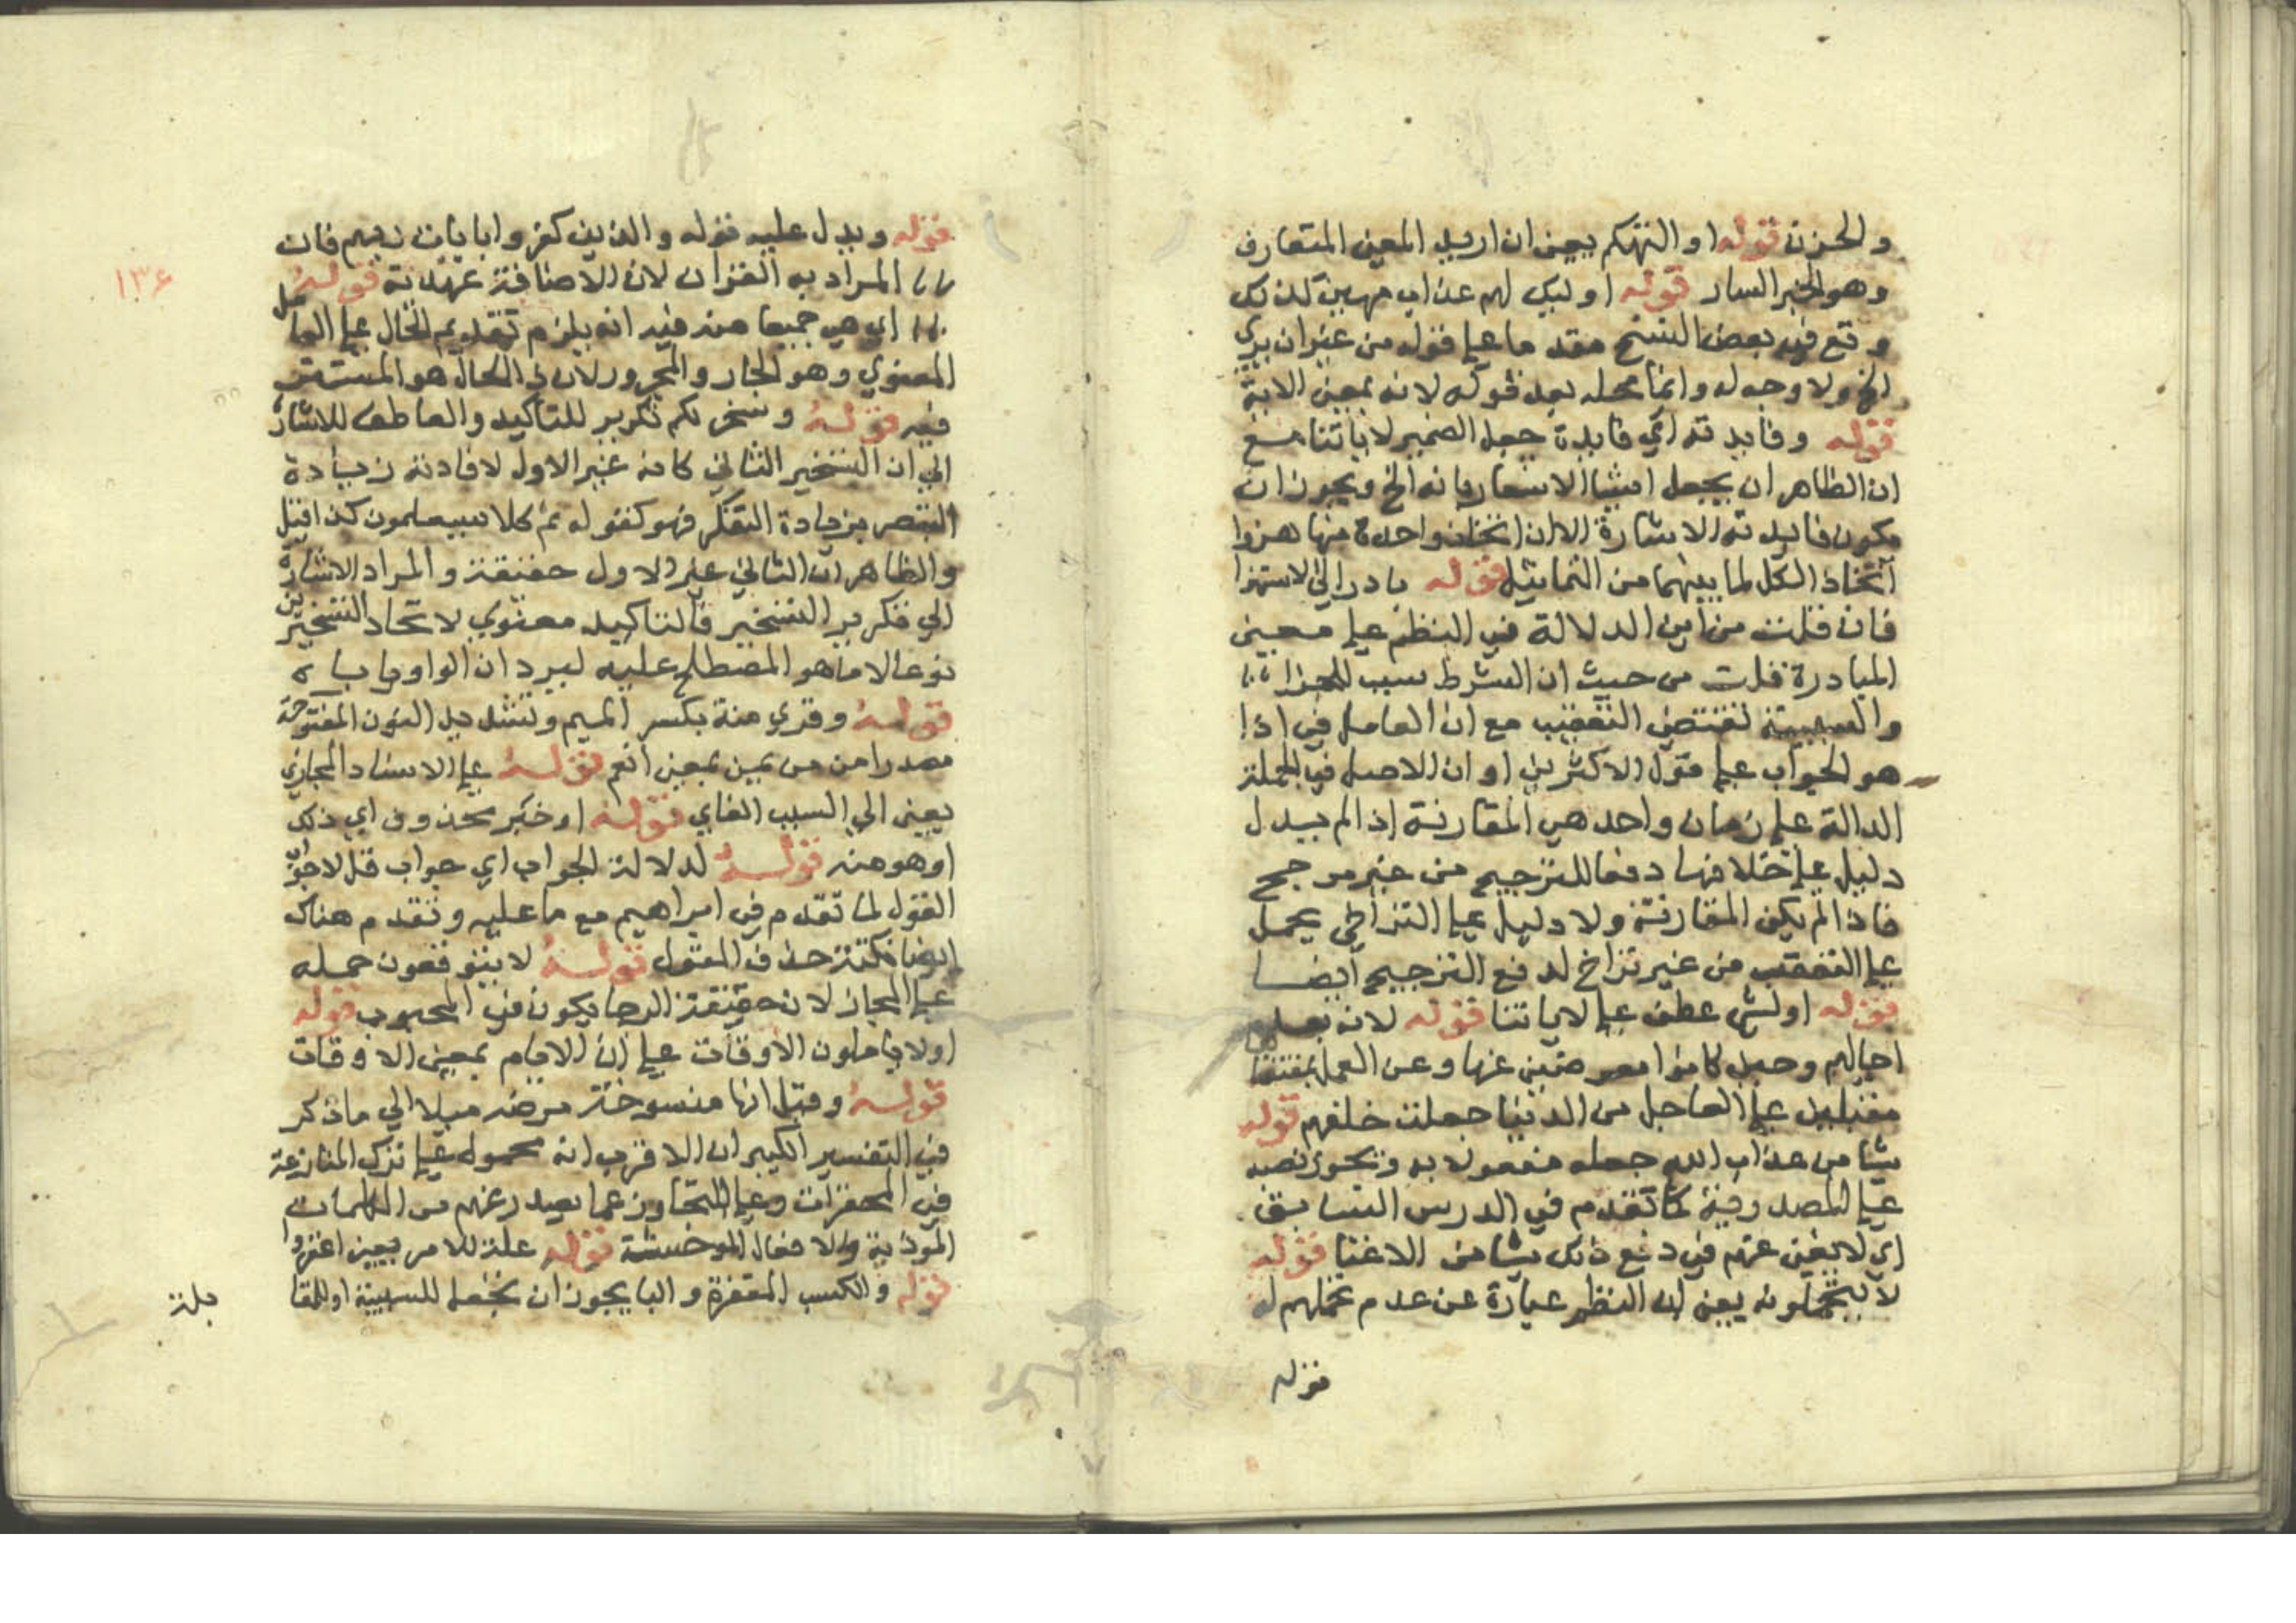 والحزن قوله او التهكم يعني ان اريد المعني المتعارف
وهو الخبر السار قوله اوليك لهم عذاب مهين كذلك
وقع في بعض النسخ مقدما علي قوله من غير ان يري
الخ ولا وجه له وانما محله بعد قوله لانه بمعني الاية
قوله وفايدته اي فايدة جعل الضمير لاياتنا مع
ان الظاهر ان يجعل لشيا الاشعار بانه الخ ويجوز ان
يكون فايدته الاشارة الا ان اتخاذ واحدة منها هزوا
اتخاذ الكل لما بينهما من التماثل قوله بادر الي الاستهزا
فان قلت من اين الدلالة في النظم علي معني
المبادرة قلت من حيث ان الشرط سبب للجزا
والسببية تقتضي التعقيب مع ان العامل في اذا
هو الجواب علي قول الاكثرين او ان الاصل في الجملة
الدالة علي زمان واحد هي المقارنة اذا لم يدل
دليل علي خلافها دفعا للترجيح من غير مرجح
فاذا لم يكن المقارنة ولا دليل علي التراخي يحمل
علي التعقيب من غير تراخ لدفع الترجيح ايضا
قوله او لشي عطف علي لاياتنا قوله لانه بعد
اجالهم وحيل كانوا معرضين عنها وعن العمل بمقتضاها
مقبلين علي العاجل من الدنيا جعلت خلفهم قوله
شيا من عذاب الله جعله مفعولا به ويجوز نصبه
علي المصدرية كما تقدم في الدرس السابق
اي لا يغني عنهم في دفع ذلك شيا من الاغنا قوله
لا يتحملونه يعني ان النظم عبارة عن عدم تحملهم له
قوله
قوله ويدل عليه قوله والذين كفروا بايات ربهم فان
المراد به القران لان الاضافة عهدية قوله
اي هي جميعا منه فيه انه يلزم تقديم الحال علي العامل
المعنوي وهو الجار والمجرور لان ذي الحال هو المستتر
فيه قوله وسخر لكم تكرير للتاكيد والعاطف للاشارة
الي ان التسخير الثاني كانه غير الاول لافادته زيادة
التبصر بزيادة التفكر فهو كقوله ثم كلا سيعلمون كذا قيل
والظاهر ان الثاني غير الاول حقيقة والمراد الاشارة
الي تكرير التسخير فالتاكيد معنوي لاتحاد التسخيرين
نوعا لا ما هو المصطلح عليه ليرد ان الواو ياباه
قوله وقري منة بكسر الميم وتشديد النون المفتوحة
مصدرا من من يمن بمعني انعم قوله علي الاسناد المجازي
يعني الي السبب الغاي قوله او خبر محذوف اي ذلك
او هو منه قوله لدلالة الجواب اي جواب قل لا جواب
القول لما تقدم في ابراهيم مع ما عليه وتقدم هناك
ايضا نكتة حذف المقول قوله لا يتوقعون حمله
علي المجاز لان حقيقة الرجا يكون في المحبوب قوله
اولا ياملون الاوقات علي ان الايام بمعني الاوقات
قوله وقيل انها منسوخة مرضه ميلا الي ما ذكر
في التفسير الكبير ان الاقرب انه محمول علي ترك المنازعة
في المحقرات وعلي التجاوز عما يصدر عنهم من الكلمات
الموذية والافعال الموحشة قوله علة للامر يعني اغفروا
قوله والكسب المغفرة والبا يجوز ان تجعل للسببية او للمقا
بلة
١٣٦